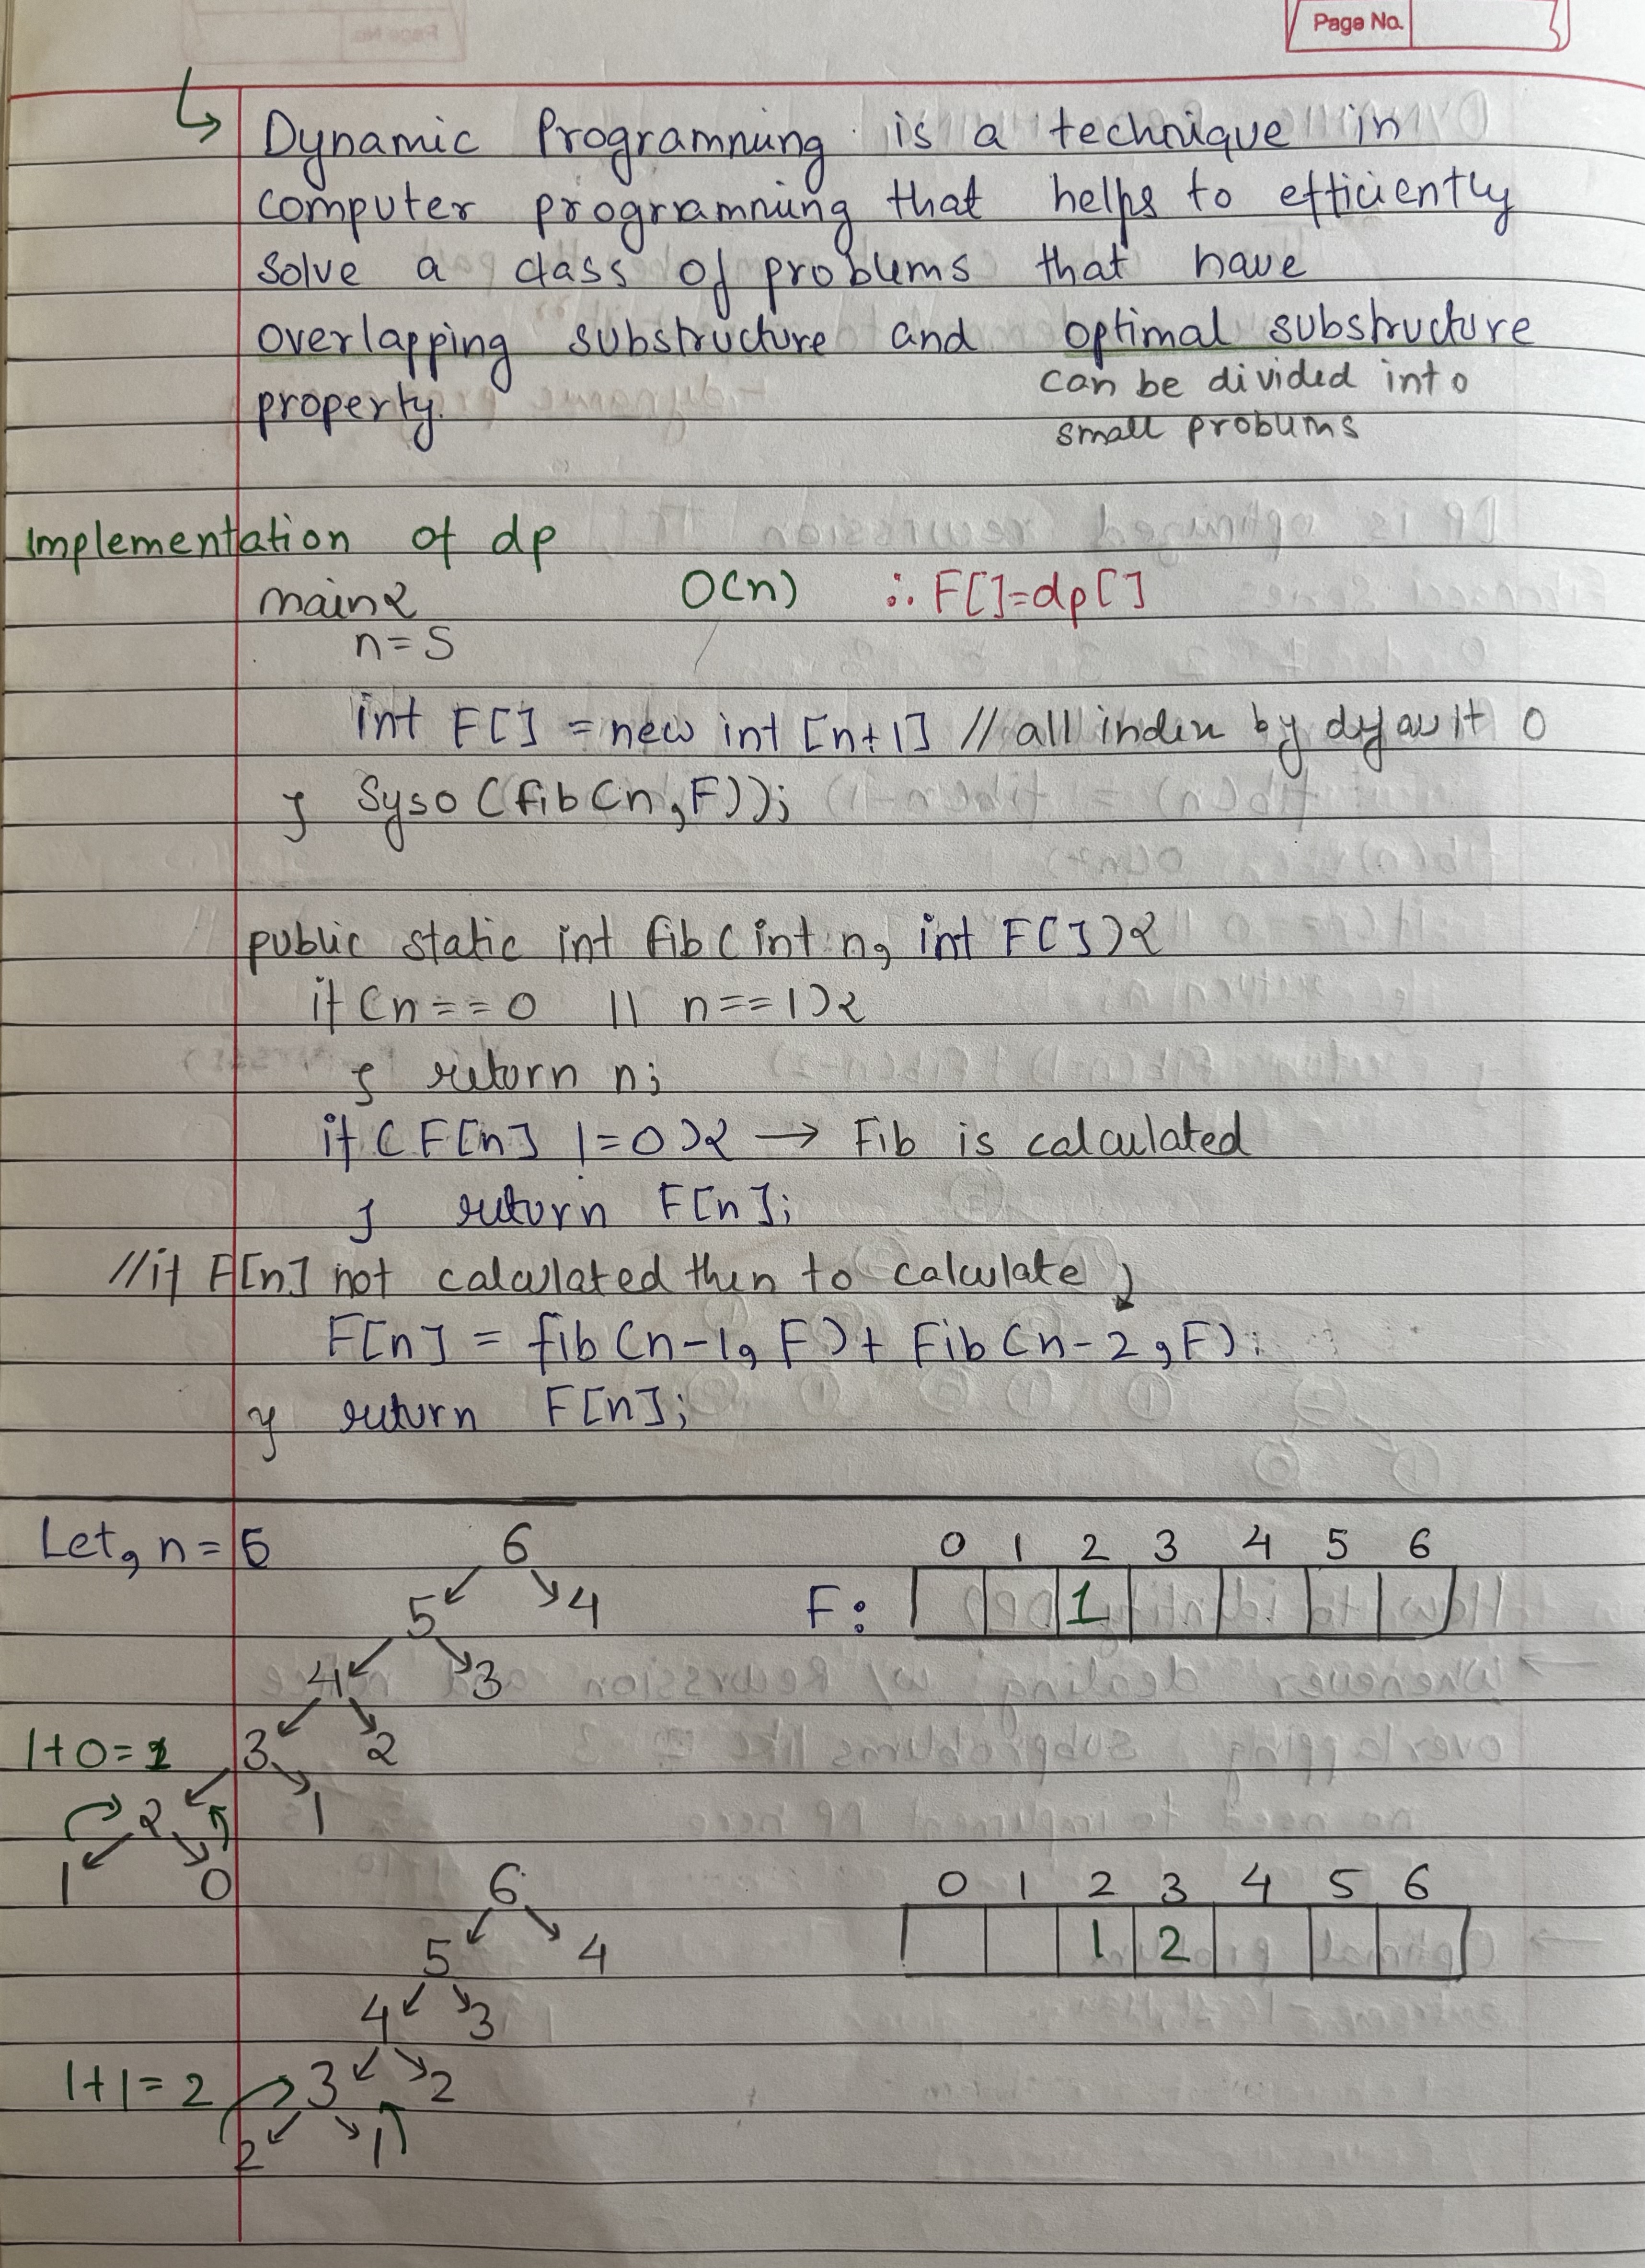 Page No.
Dynamic Programming is a technique in
computer programming that helps to efficiently
solve a class of problems that have
overlapping substructure and optimal substructure
property.
can be divided into
small problems
Implementation of dp
main{ O(n) ∴ F[]=dp[]
n=5
int F[] = new int [n+1] // all index by default 0
} Syso (fib(n,F));
public static int fib(int n, int F[]){
if(n==0 || n==1){
} return n;
if(F[n] !=0){ → Fib is calculated
} return F[n];
//if F[n] not calculated then to calculate
F[n] = fib(n-1, F)+ Fib(n-2,F);
} return F[n];
Let, n = 6
6
5 4
4 3
3 2
1+0=1
2 1
1 0
0 1 2 3 4 5 6
F: 1
6
5 4
4 3
1+1=2 3 2
2 1
0 1 2 3 4 5 6
1 2